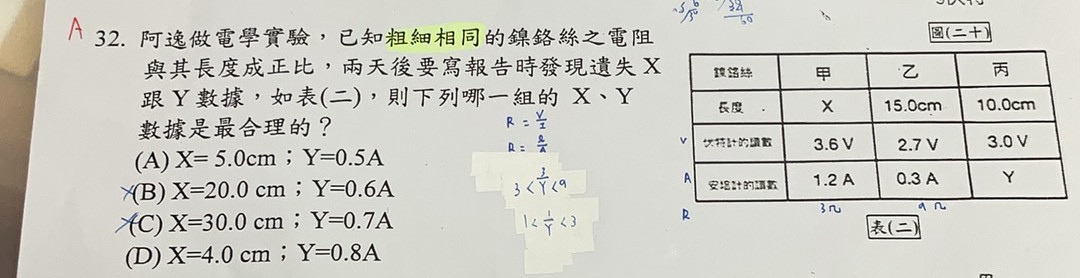 圖(二十)
A 32. 阿逸做電學實驗，已知粗細相同的鎳鉻絲之電阻
與其長度成正比，兩天後要寫報告時發現遺失 X
跟 Y 數據，如表(二)，則下列哪一組的 X、Y
數據是最合理的？
(A) X= 5.0cm；Y=0.5A
(B) X=20.0 cm；Y=0.6A
(C) X=30.0 cm；Y=0.7A
(D) X=4.0 cm；Y=0.8A
R = V/I
R = ℓ/A
3 < 3/Y < 9
1 < 1/Y < 3
鎳鉻絲 甲 乙 丙
長度 X 15.0cm 10.0cm
V 伏特計的讀數 3.6 V 2.7 V 3.0 V
A 安培計的讀數 1.2 A 0.3 A Y
R 3Ω 9Ω
表(二)